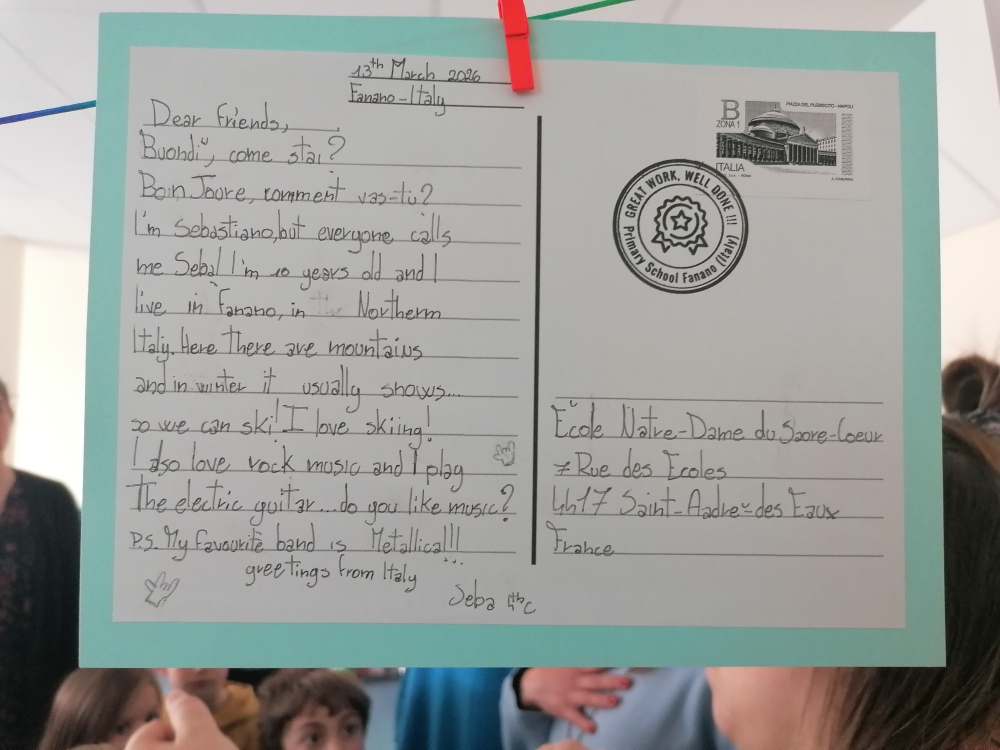 13th March 2026
Fanano-Italy
Dear friends,
Buondì, come stai?
Boin Joure, comment vas-tu?
I'm Sebastiano, but everyone calls
me Seba! I'm 10 years old and I
live in Fanano, in the Northern
Italy. Here there are mountains
and in winter it usually snows...
so we can ski! I love skiing!
I also love rock music and I play
the electric guitar...do you like music?
P.S. My favourite band is Metallica!!!
greetings from Italy
Seba 4th C
B
ZONA 1
PIAZZA DEL PLEBISCITO - NAPOLI
ITALIA
GREAT WORK, WELL DONE !!!
Primary School Fanano (Italy)
École Natre-Dame du Sacre-Coeur
7 Rue des Ecoles
4417 Saint-Aadre-des Eaux
France